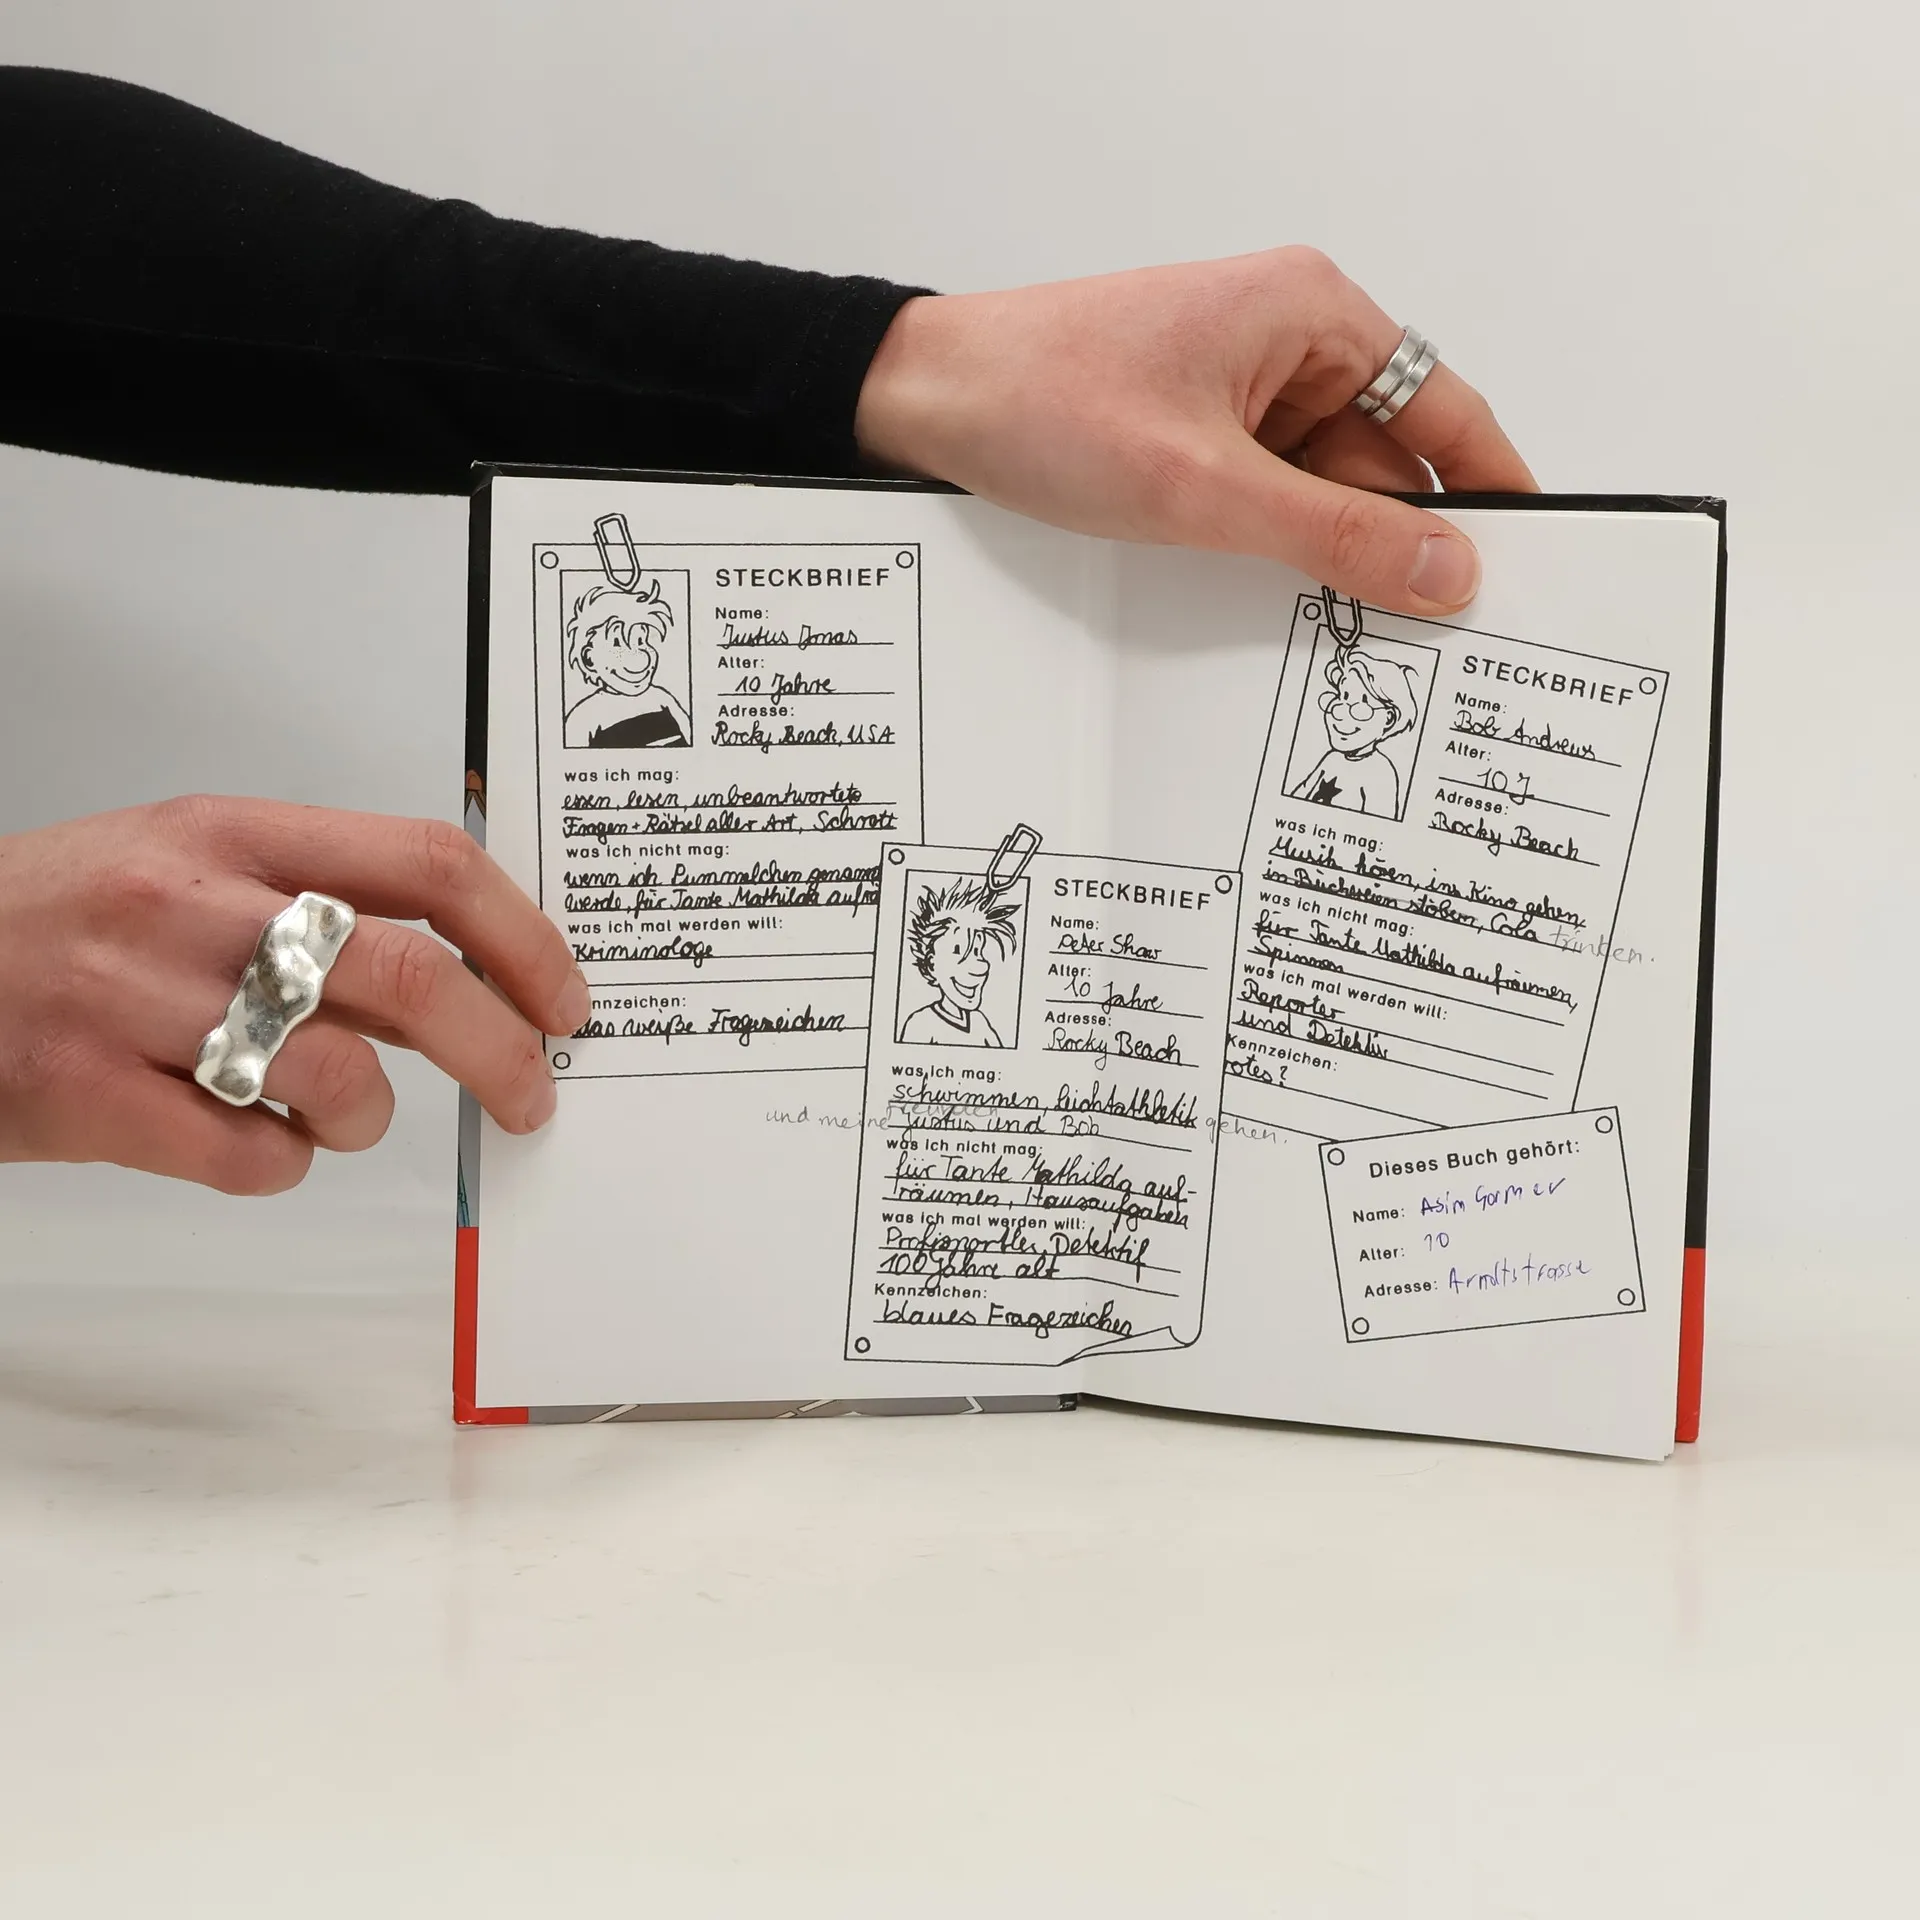 STECKBRIEF
Name:
Justus Jonas
Alter:
10 Jahre
Adresse:
Rocky Beach, USA
was ich mag:
essen, lesen, unbeantwortete
Fragen + Rätsel aller Art, Schrott
was ich nicht mag:
wenn ich Pummelchen genannt
werde, für Tante Mathilda
was ich mal werden will:
Kriminologe
nnzeichen:
das weiße Fragezeichen
STECKBRIEF
Name:
Peter Shaw
Alter:
10 Jahre
Adresse:
Rocky Beach
was ich mag:
schwimmen, Leichtathletik
und meine Freunden gehen.
Justus und Bob
was ich nicht mag:
für Tante Mathilda auf-
räumen, Hausaufgaben
was ich mal werden will:
Profisportler, Detektif
100 Jahre alt
Kennzeichen:
blaues Fragezeichen
STECKBRIEF
Name:
Bob Andrews
Alter:
10 J
Adresse:
Rocky Beach
was ich mag:
Musik hören, ins Kino gehen,
in Büchereien stöbern, Cola trinken.
was ich nicht mag:
für Tante Mathilda aufräumen,
Spinnen
was ich mal werden will:
Reporter
und Detektiv
Kennzeichen:
rotes?
Dieses Buch gehört:
Name: Asim
Alter: 10
Adresse: Arndtstrasse